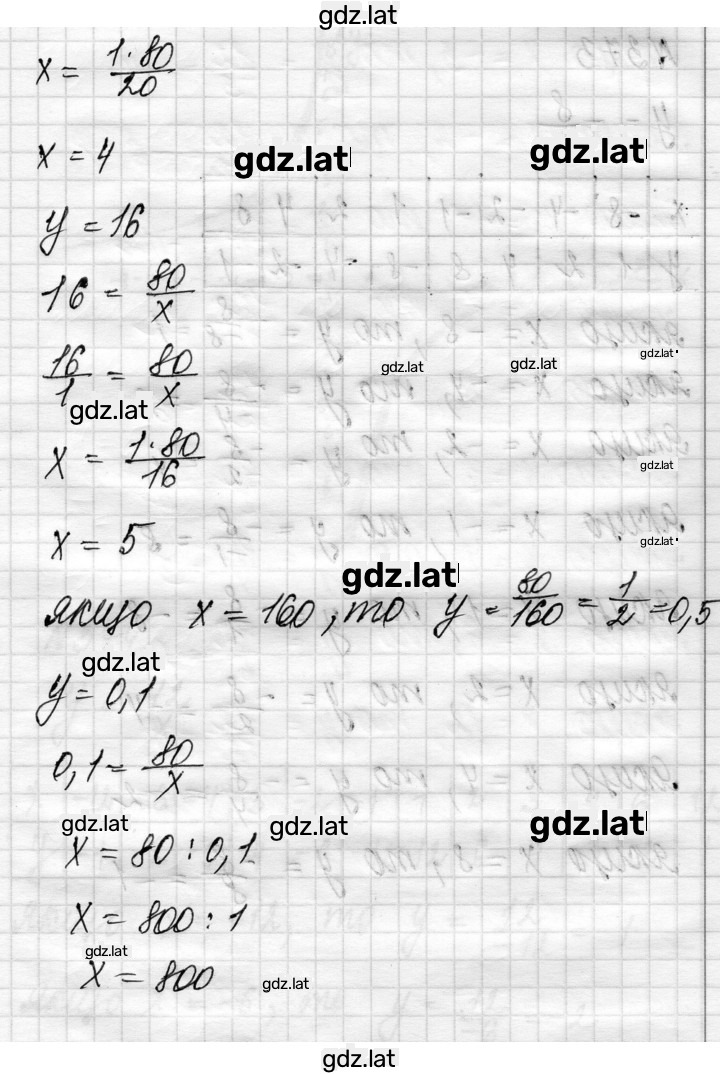 gdz.lat
x = 1·80/20
x = 4
gdz.lat gdz.lat
y = 16
16 = 80/x
16/1 = 80/x
gdz.lat gdz.lat gdz.lat
gdz.lat
x = 1·80/16
gdz.lat
x = 5
gdz.lat
gdz.lat
якщо x = 160, то y = 80/160 = 1/2 = 0,5
gdz.lat
y = 0,1
0,1 = 80/x
gdz.lat gdz.lat gdz.lat
x = 80 : 0,1
x = 800 : 1
gdz.lat
x = 800
gdz.lat
gdz.lat